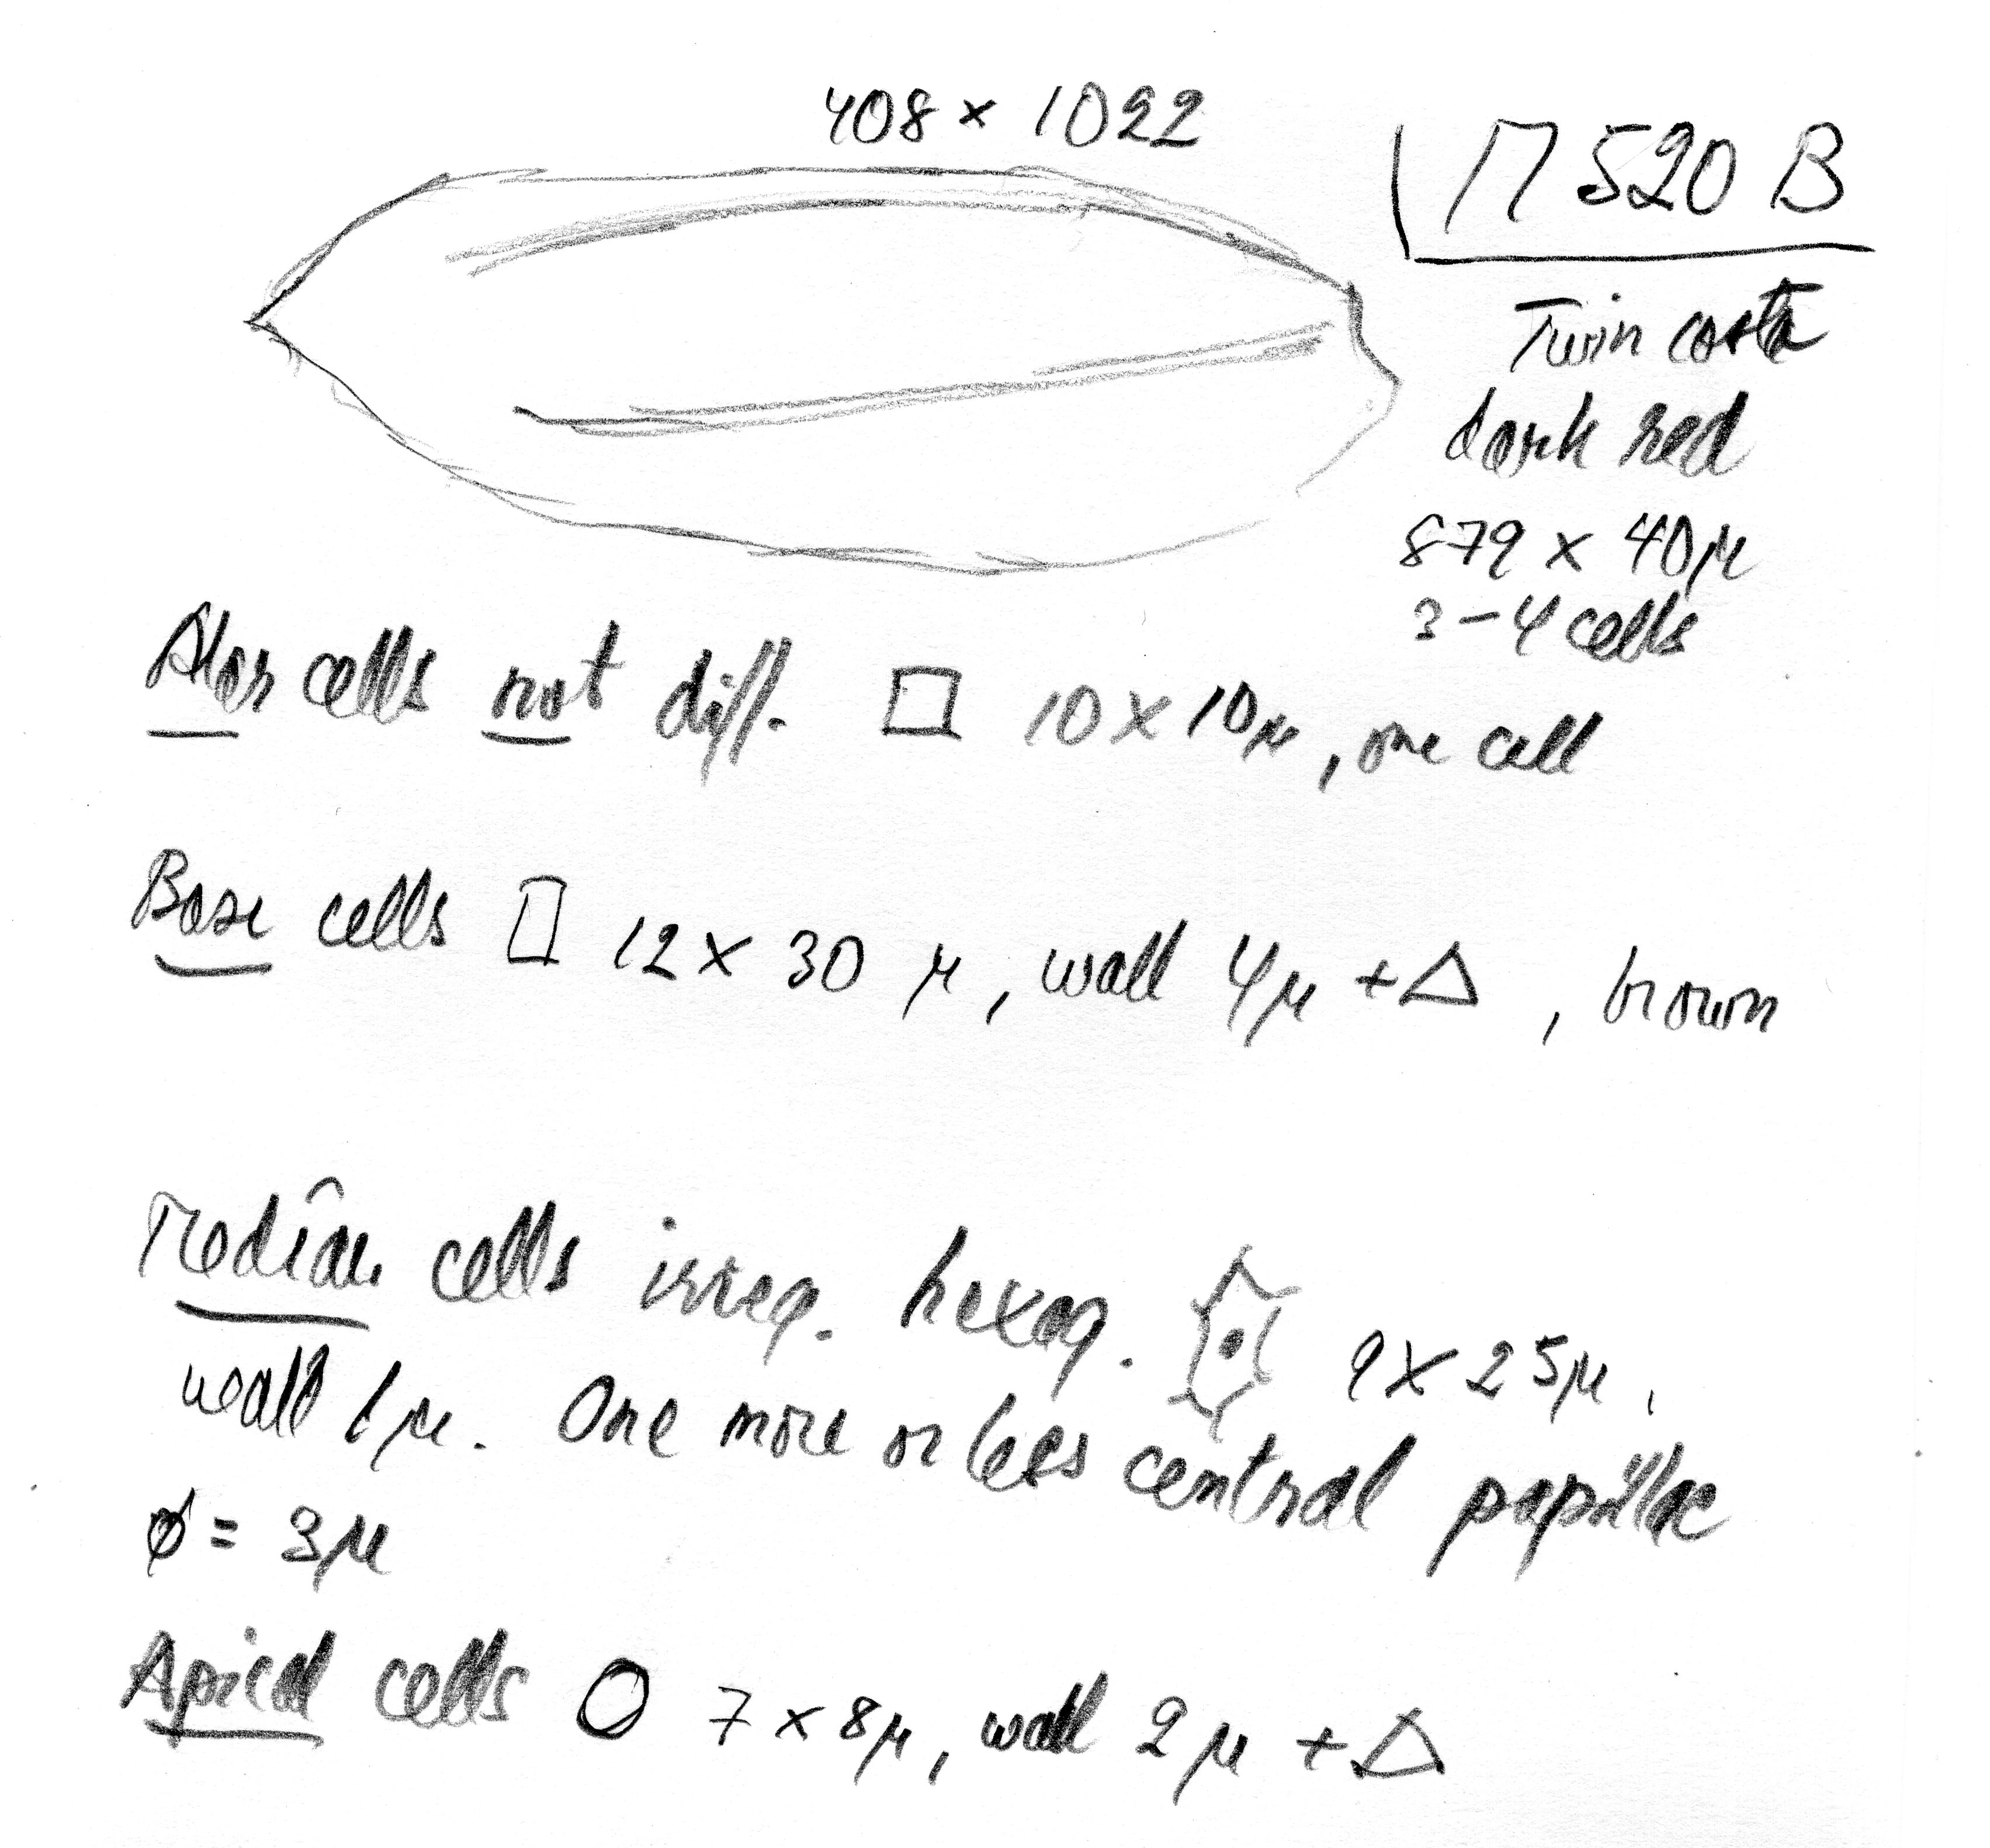 408 × 1022
M 520 B
Twin costa
dark red
879 × 40μ
3-4 cells
Alar cells not diff. □ 10 × 10μ, one cell
Base cells ▯ 12 × 30 μ, wall 4μ + △, brown
Median cells irreg. hexag. 9 × 25μ,
wall 1μ. One more or less central papillae
ø = 3μ
Apical cells O 7 × 8μ, wall 2μ + △